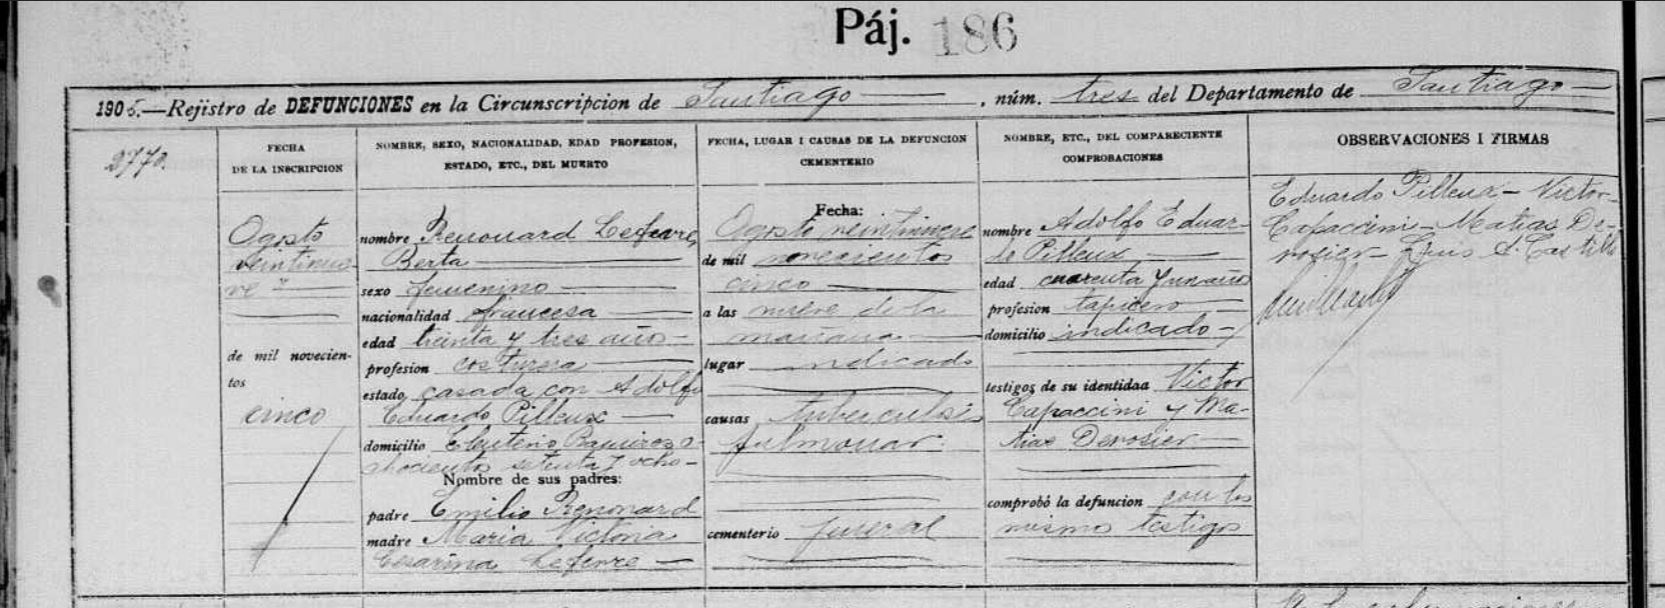 Páj. 186
1905.—Rejistro de DEFUNCIONES en la Circunscripcion de Santiago, núm. tres del Departamento de Santiago
2770.
FECHA
DE LA INSCRIPCION
Agosto
veintinue-
ve
de mil novecien-
tos
cinco
NOMBRE, SEXO, NACIONALIDAD, EDAD PROFESION,
ESTADO, ETC., DEL MUERTO
nombre Renouard Lefevre,
Berta
sexo femenino
nacionalidad francesa
edad treinta y tres años
profesion costurera
estado casada con Adolfo
Eduardo Pilleux
domicilio Eleuterio Ramirez o-
chocientos setenta y ocho
Nombre de sus padres:
padre Emilio Renouard
madre Maria Victoria
Cesarina Lefevre
FECHA, LUGAR I CAUSAS DE LA DEFUNCION
CEMENTERIO
Fecha:
Agosto veintinueve
de mil novecientos
cinco
a las nueve de la
mañana
lugar indicado
causas tuberculosis
pulmonar
cementerio jeneral
NOMBRE, ETC., DEL COMPARECIENTE
COMPROBACIONES
nombre Adolfo Eduar-
do Pilleux
edad cuarenta y un años
profesion tapicero
domicilio indicado
testigos de su identidad Victor
Capaccini y Ma-
tias Derosier
comprobó la defuncion con los
mismos testigos
OBSERVACIONES I FIRMAS
Eduardo Pilleux - Victor
Capaccini - Matias De-
rosier - Luis A. Castillo